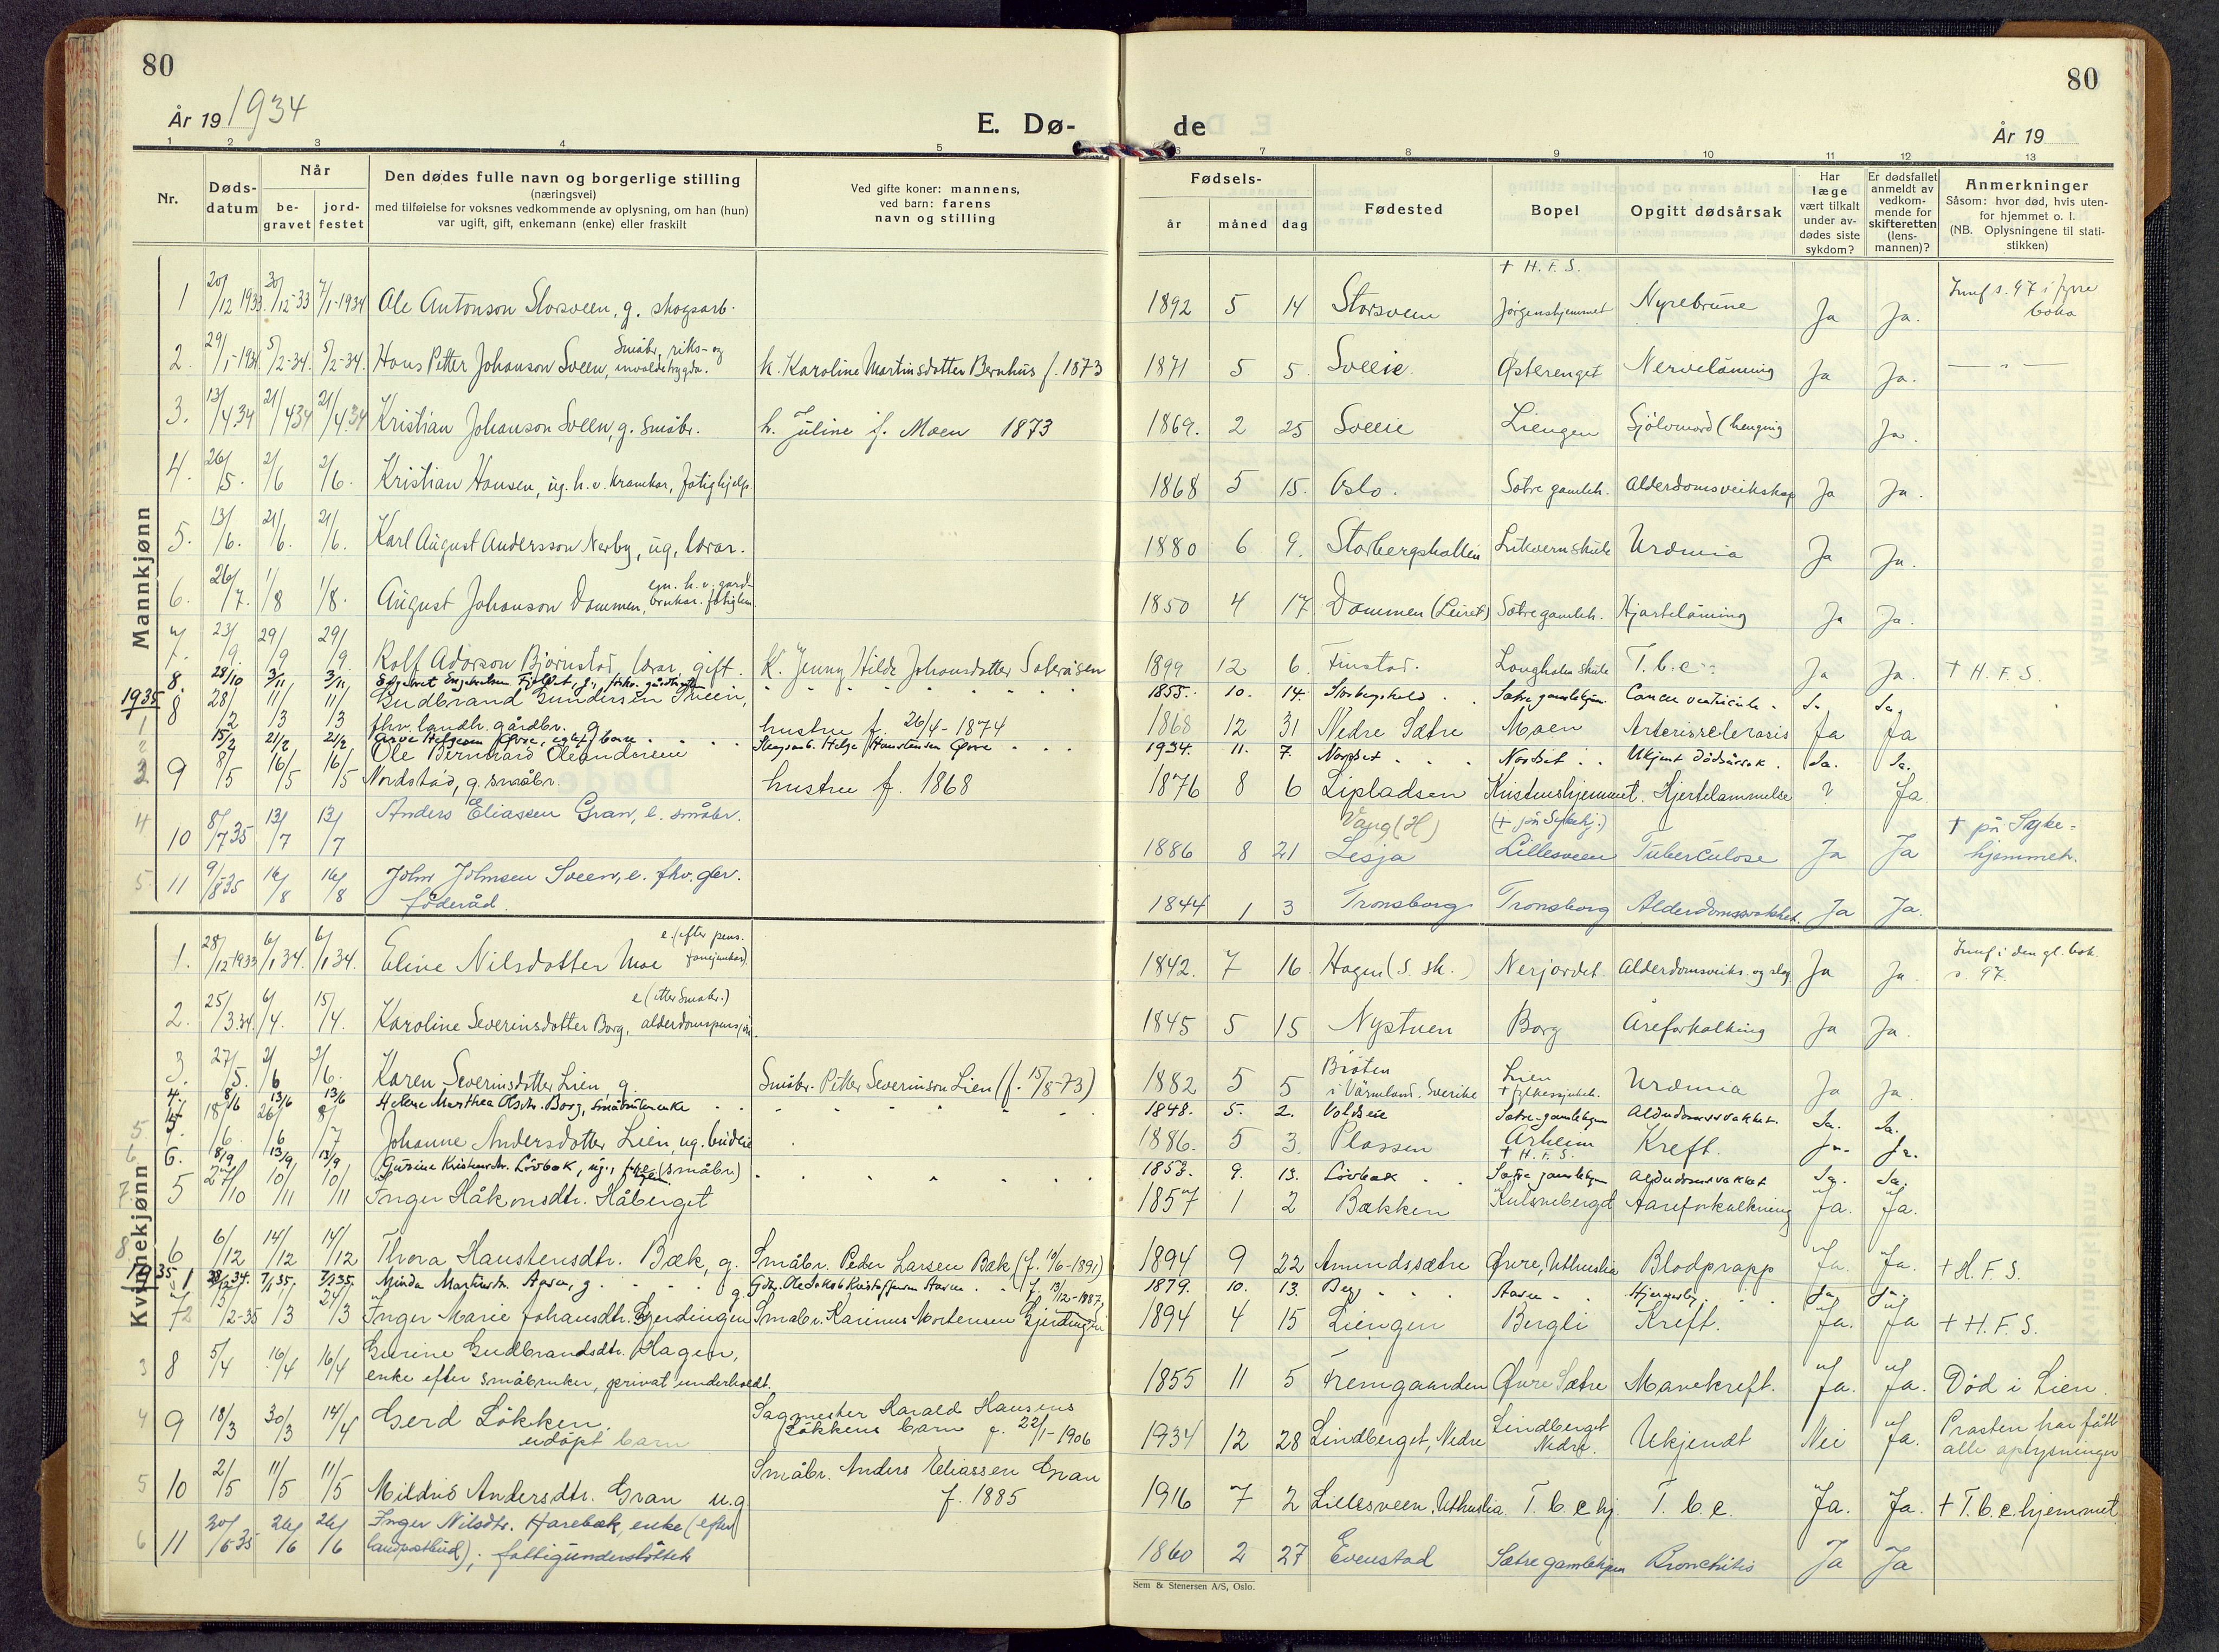 80
80
År 19 1934
E. Dø-
de
År 19
1 2 3 4 5
6 7 8 9 10 11 12 13
Nr.
Døds-
datum
Når
be-
gravet
jord-
festet
Den dødes fulle navn og borgerlige stilling
(næringsvei)
med tilføielse for voksnes vedkommende av oplysning, om han (hun)
var ugift, gift, enkemann (enke) eller fraskilt
Ved gifte koner: mannens,
ved barn: farens
navn og stilling
Fødsels-
år måned dag
Fødested
Bopel
Opgitt dødsårsak
Har
læge
vært tilkalt
under av-
dødes siste
sykdom?
Er dødsfallet
anmeldt av
vedkom-
mende for
skifteretten
(lens-
mannen)?
Anmerkninger
Såsom: hvor død, hvis uten-
for hjemmet o. l.
(NB. Oplysningene til stati-
stikken)
Mannkjønn
1 20/12 1933 30/12-33 7/1-1934 Ole Antonson Storsveen, g. skogsarb. 1892 5 14 Storsveen + H. F. S. Jørgenshjemmet Nyrebrune Ja Ja.
2. 29/1-1934. 5/2-34. 5/2-34. Hans Petter Johanson Sveen, småbr, riks- og h. Karoline Martinsdotter Bernhus f. 1873 1871 5 5. Sveeie. Østerenget Nervelåming Ja Ja. — " —
3. 13/4.34 21/4 34 21/4.34 Kristian Johanson Sveen, g. småbr. h. Juline f. Moen 1873 1869. 2 25 Sveeie Liengen Sjølvmord (henging Ja.
4. 26/5. 2/6 2/6. Kristian Hansen, ug. h. v. kramkar, fatighjelp. 1868 5 15. Oslo. Sætre gamleh. Alderdomsveikskap Ja Ja.
5. 13/6. 21/6. 21/6. Karl August Andersson Nerby, ug, lærar. 1880 6 9. Storbergshallen Uræmia Ja Ja.
6. 26/7. 1/8 1/8. August Johanson Dammen, em. h. v. gard- 1850 4 17 Dammen (Leiret) Sætre gamleh. Hjartelåming Ja Ja.
7. 23/9 29/9 29/9. Rolf Adorson Bjørnstad, lærar, gift. K. Jenny Hilde Johansdotter Solvåsen 1899 12 6. Finstad. Langholen skule T. b. c. Ja Ja. + H. F. S.
8. 28/10 3/11 3/11 1855. 10. 14. Sætre gamlehjem Cancer ventriculi. Ja. Ja.
1935
1 8 28/2 11/3 11/3 Gudbrand Gundersen Træen,
fhv. landh. gårdbr. g. hustru f. 26/4-1874 1868 12 31 Nedre Sætre Moen Arteriosclerosis Ja Ja
2 15/2 21/2 21/2 Arve Helgesen Øvre, Skogsarb. Helge Haustensen Øvre 1934. 11. 7. Nordset Nordset Ukjent dödsårsak. Ja. Ja.
3 9 8/5 16/5 16/5 Ole Bernhard Oleandersen
Nordstad, g. småbr. hustru f. 1868 1876 8 6 Lipladsen Kristenshjemmet. Hjertelammelse ? Ja
4 10 8/7 35 13/7 13/7 Anders Eliassen Gran, e. småbr. 1886 8 21 Vang (H) Lesja (+ på Sykehj.) Lillesveen Tuberculose Ja Ja + på Syke-
hjemmet.
5 11 9/8 35 16/8 16/8 John Johnsen Sveen, e. fhv. gbr.
føderåd. 1844 1 3 Tronsborg Tronsborg Alderdomssvakhet. Ja Ja.
Kvinnekjønn
1. 28/12 1933 6/1 34. 6/1 34. Eline Nilsdotter Moe e. (efter pens. 1842. 7 16. Hagen (S. sk.) Nerjordet Alderdomsveiks. og slag Ja Ja Innf. i den gl. bok.
s. 97.
2. 25/3.34. 6/4. 15/4. Karoline Severinsdotter Borg, e (etter småbr.) alderdomspensjon. 1845 5 15 Nystuen Borg Åreforkalking Ja Ja.
3. 27/5. 2/6 2/6. Karen Severinsdotter Lien, g. Småbr. Petter Severinson Lien (f. 15/8-73) 1882 5 5 Bråten i Värmland. Sverike Lien Uræmia Ja Ja.
4. 8/6 13/6 13/6 Helene Marthea Olsdtr. Borg, småbrukerenke 1848. 5. 2. Voldseie Sætre gamlehjem Alderdomssvakhet. Ja. Ja.
5 18/6. 26/6 8/7 Johanne Andersdotter Lien, ug. budeie 1886. 5 3. Plassen Årheim + H. F. S. Kreft. Ja. Ja.
6. 8/9 13/9 13/9 Gurine Kristensdtr. Lövbak, ug., (småbr.) 1853. 9. 13. Lövbak Sætre gamlehjem Alderdomssvakhet Ja. Ja.
7. 5 27/10 10/11 10/11 Inger Håkonsdtr. Håberget 1857 1 2 Bakken Kulsneberget Aareforkalkning Ja. Ja.
8 6 6/12 14/12 14/12 Thora Haustensdtr. Bæk, g. Småbr. Peder Larsen Bæk (f. 19/6-1891) 1894 9 22 Amundssætre Øvre, Uthuslia Blodpropp Ja. Ja. + H. F. S.
1935 1 28/12 34. 7/1 35. 7/1 35. Minda Martinsdtr. Aasen, g. Gdbr. Ole Jakob Kristoffersen Aasen f. 13/12-1887. 1879. 10. 13. Berg Aasen Ja. Ja.
2 /2-35 /3 24/3 Inger Marie Johansdtr. Gjerdingen g. Småbr. Karinus Mortensen Gjerdingen 1894 4 15 Liengen Bergli Kreft. Ja. Ja + H. F. S.
3 8 5/4 16/4 16/4 Gurine Gudbrandsdtr. Hagen,
enke efter småbruker, privat underholdt. 1855 11 5 Fremgaarden Øvre Sætre Mavekreft. Ja. Ja. Död i Lien.
4 9 18/3 30/3 14/4 Gerd Løkken,
udøpt barn Sagmester Harald Hansens
Løkkens barn f. 22/1-1906 1934 12 28 Lindberget, Nedre Lindberget Nedre. Ukjendt Nei Ja. Prasten har fått
alle oplysninger
5 10 2/5 11/5 11/5 Mildrid Andersdtr. Gran u.g. Småbr. Anders Eliassen Gran
f. 1885 1916 7 2 Lillesveen, Uthuslia T. b. c. hj. T. b. c. Ja. Ja. + T. b. c. hjemmet
6 11 20/6 35 26/6 26/6 Inger Nilsdtr. Harebæk, enke (efter
landpostbud); fattigunderstöttet 1860 2 27 Evenstad Sætre gamlehjem Bronchitis Ja Ja
Sem & Stenersen A/S, Oslo.